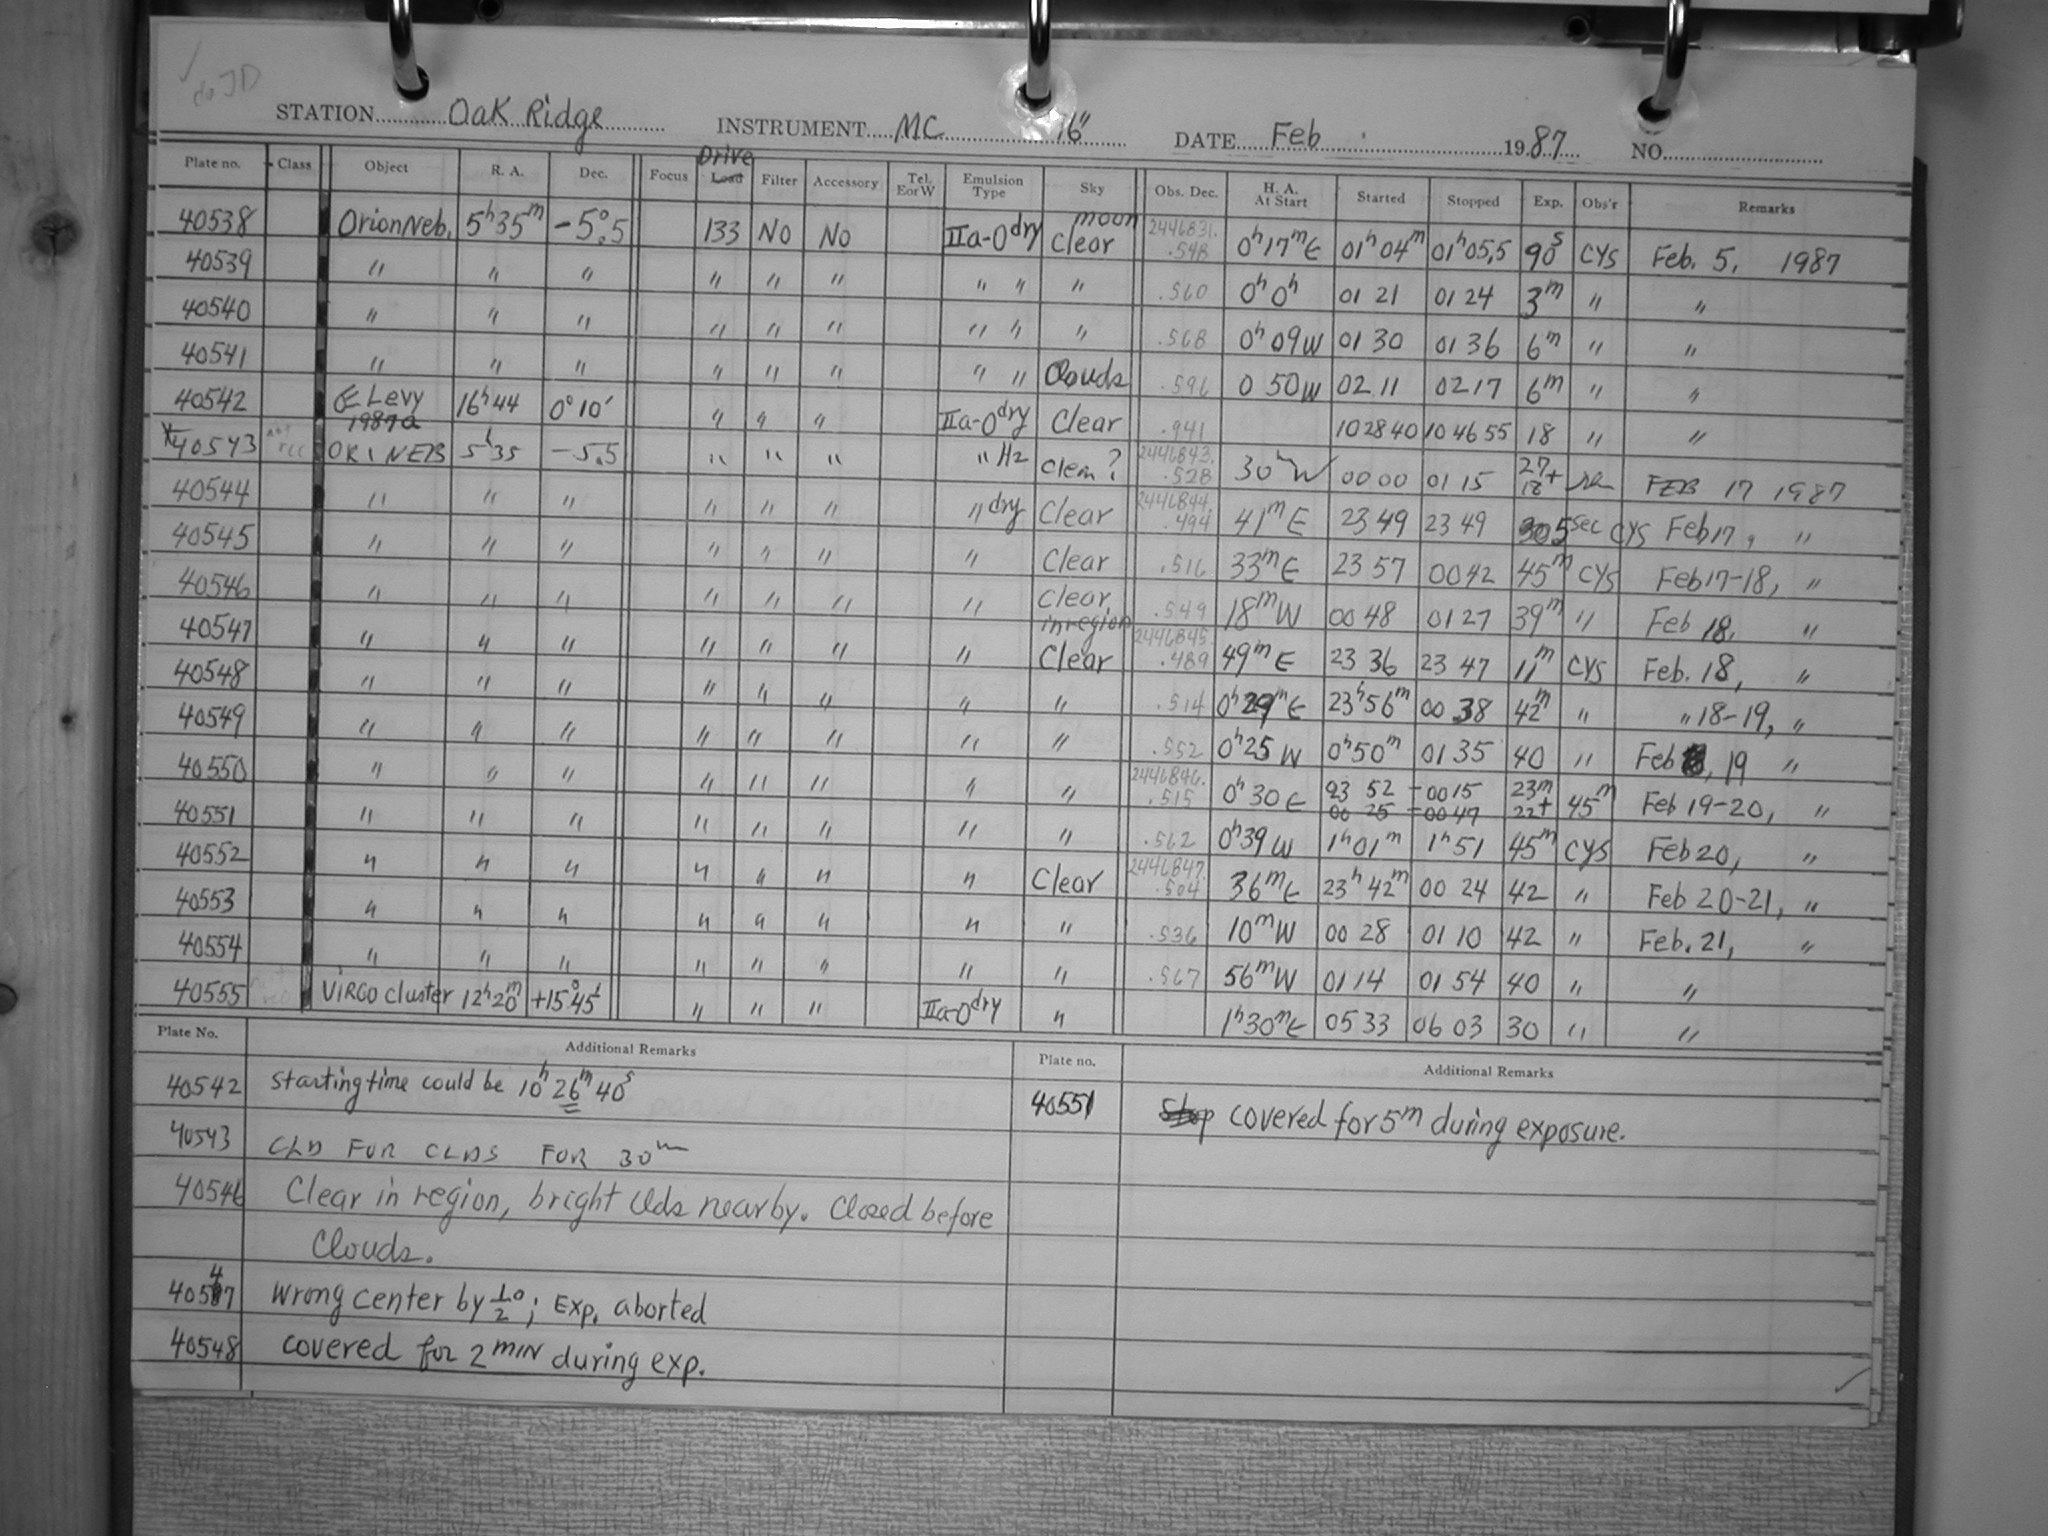 ✓ do JD
STATION Oak Ridge INSTRUMENT MC 16" DATE Feb 1987 NO.
Plate no. Class Object R. A. Dec. Focus Drive Load Filter Accessory Tel. E or W Emulsion Type Sky Obs. Dec. H. A. At Start Started Stopped Exp. Obs'r Remarks
40538 Orion Neb. 5h35m -5°.5 133 NO NO IIa-O dry moon Clear 2446831. .548 0h17mE 01h04m 01h05.5 90s CYS Feb. 5, 1987
40539 " " " " " " " " " .560 0h0h 01 21 01 24 3m " "
40540 " " " " " " " " " .568 0h09W 01 30 01 36 6m " "
40541 " " " " " " " " Clouds .596 0 50W 02 11 02 17 6m " "
40542 Levy 1987a 16h44 0°10' " " " IIa-O dry Clear .941 10 28 40 10 46 55 18 " "
40543 not rec ORI NEB 5h35 -5.5 " " " " H2 Clem? 2446843. .528 30mW 00 00 01 15 27+ 18 FEB 17 1987
40544 " " " " " " " dry Clear 2446844. .494 41mE 23 49 23 49 5sec CYS Feb 17, "
40545 " " " " " " " Clear .516 33mE 23 57 00 42 45m CYS Feb 17-18, "
40546 " " " " " " " Clear in region .549 18mW 00 48 01 27 39m " Feb 18, "
40547 " " " " " " " Clear 2446845. .489 49mE 23 36 23 47 11m CYS Feb. 18, "
40548 " " " " " " " " .514 0h29mE 23h56m 00 38 42m " " 18-19, "
40549 " " " " " " " " .552 0h25W 0h50m 01 35 40 " Feb 19 "
40550 " " " " " " " " 2446846. .515 0h30E 23 52 - 00 15 23m 00 25 - 00 47 22+ 45m Feb 19-20, "
40551 " " " " " " " " .562 0h39W 1h01m 1h51 45m CYS Feb 20, "
40552 " " " " " " " Clear 2446847. .504 36mE 23h42m 00 24 42 " Feb 20-21, "
40553 " " " " " " " " .536 10mW 00 28 01 10 42 " Feb. 21, "
40554 " " " " " " " " .567 56mW 01 14 01 54 40 " "
40555 VIRGO cluster 12h20m +15°45' " " " IIa-O dry " 1h30mE 05 33 06 03 30 " "
Plate No. Additional Remarks Plate no. Additional Remarks
40542 starting time could be 10h 26m 40s
40551 Stop covered for 5m during exposure.
40543 CLD FOR CLDS FOR 30m
40546 Clear in region, bright clds nearby. Closed before
Clouds.
40547 Wrong center by 1/2°; Exp. aborted
40548 covered for 2 MIN during exp.
✓